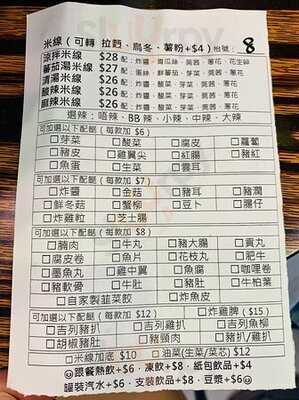 米線（可轉 拉麵、烏冬、薯粉+$4）枱號 8
涼拌米線 $28 配：炸醬、青瓜絲、芫茜、蔥花、花生碎
蕃茄湯米線 $27 配：蛋絲、鮮蕃茄、芫茜、蔥花
清湯米線 $26 配：炸醬、酸菜、芽菜、芫茜、蔥花
酸辣米線 $26 配：炸醬、酸菜、芽菜、芫茜、蔥花
麻辣米線 $26 配：炸醬、酸菜、芽菜、芫茜、蔥花
選辣：唔辣、BB 辣、小辣、中辣、大辣
可加選以下配餸（每款加 $6）
□芽菜 □酸菜 □腐皮 □蘿蔔
□豬皮 □雞翼尖 □紅腸 □豬紅
□魚蛋 □生菜 □雲耳
可加選以下配餸（每款加 $7）
□炸醬 □金菇 □豬耳 □豬潤
□鮮冬菇 □蟹柳 □豆卜 □腸仔
□炸雞粒 □芝士腸
可加選以下配餸（每款加 $8）
□腩肉 □牛丸 □豬大腸 □貢丸
□腐皮卷 □魚片 □花枝丸 □肥牛
□墨魚丸 □雞中翼 □魚腐 □咖喱卷
□豬軟骨 □牛肚 □豬肚 □牛柏葉
□自家製韮菜餃 □炸魚皮
可加選以下配餸（每款加 $12） □炸雞脾（$15）
□吉列豬扒 □吉列雞扒 □吉列魚柳
□胡椒豬肚 □豬頸肉 □豬扒/雞扒
□米線加底 $10 □油菜(生菜/菜芯) $12
☺跟餐熱飲+$6，凍飲+$8，紙包飲品+$4
罐裝汽水+$6，支裝飲品+$8，豆漿+$6☺